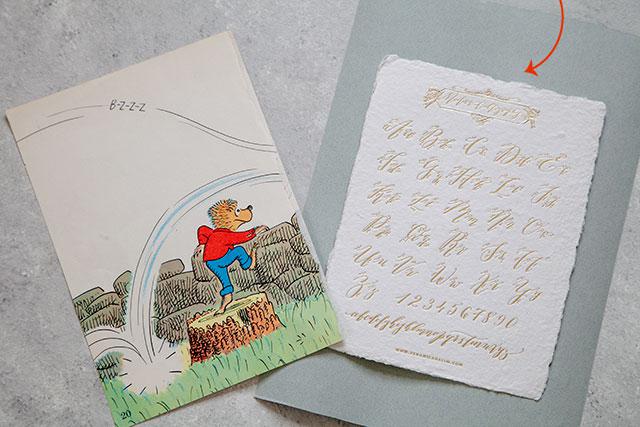 B-Z-Z-Z
20
Aa Bb Cc Dd Ee
Ff Gg Hh Ii Jj
Kk Ll Mm Nn Oo
Pp Qq Rr Ss Tt
Uu Vv Ww Xx Yy
Zz 1234567890
abcdefghijklmnopqrstuvwxyz